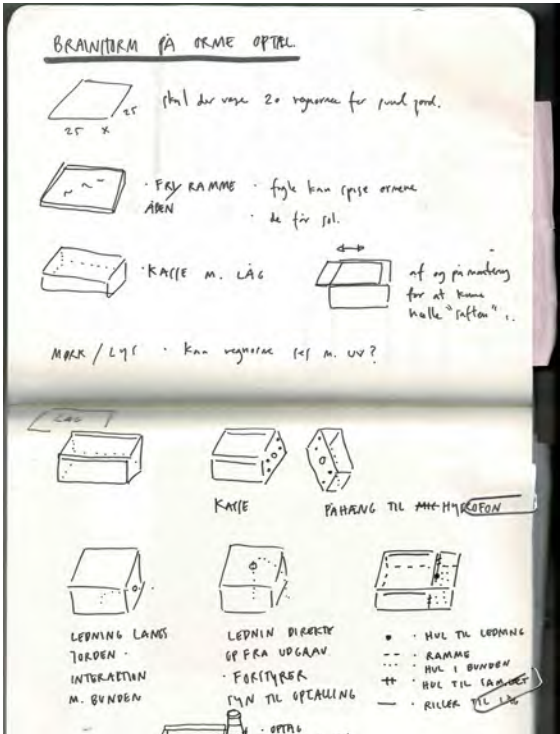 BRAINSTORM PÅ ORME OPTÆL.
skal der være 20 regnorme for sund jord.
25
25 x
· FRI/ RAMME
ÅBEN
· fugle kan spise ormene
· de får sol.
· KASSE M. LÅG
af og på montering
for at kunne
hælde "saften" i.
MØRK / LYS · kan regnorme ses m. UV?
LÅG
KASSE
PÅHÆNG TIL HYDROFON
LEDNING LANGS
JORDEN ·
INTERAKTION
M. BUNDEN
LEDNIN DIREKTE
OP FRA UDGRAV.
· FORSTYRER
SYN TIL OPTÆLLING
· HUL TIL LEDNING
--- · RAMME
···· · HUL I BUNDEN
· HUL TIL
— · RILLER TIL LÅG
· OPTAG